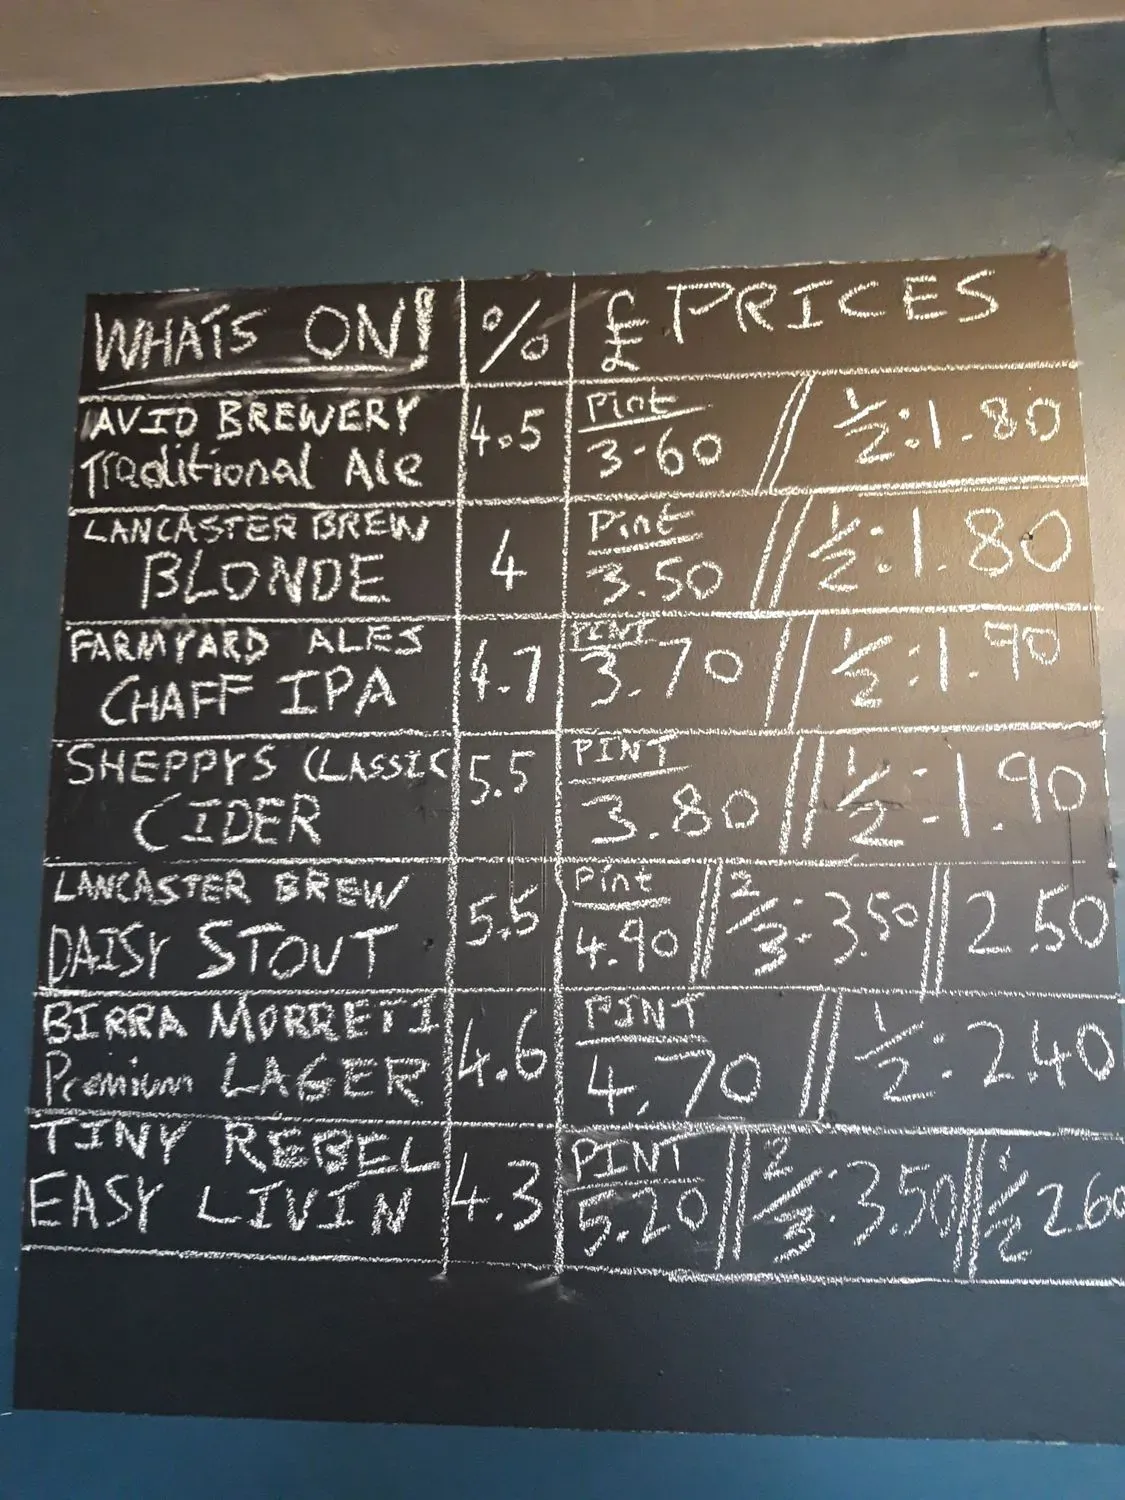 WHATS ON! % £ £ PRICES
AVID BREWERY 4.5 Pint // 1/2:1.80
Traditional Ale 3.60
LANCASTER BREW 4 Pint // 1/2:1.80
BLONDE 3.50
FARMYARD ALES 4.7 PINT // 1/2:1.90
CHAFF IPA 3.70
SHEPPYS CLASSIC 5.5 PINT // 1/2:1.90
CIDER 3.80
LANCASTER BREW 5.5 Pint // 2/3:3.50 // 2.50
DAISY STOUT 4.90
BIRRA MORRETI 4.6 PINT // 1/2:2.40
Premium LAGER 4.70
TINY REBEL 4.3 PINT // 2/3:3.50 // 1/2 2.60
EASY LIVIN 5.20